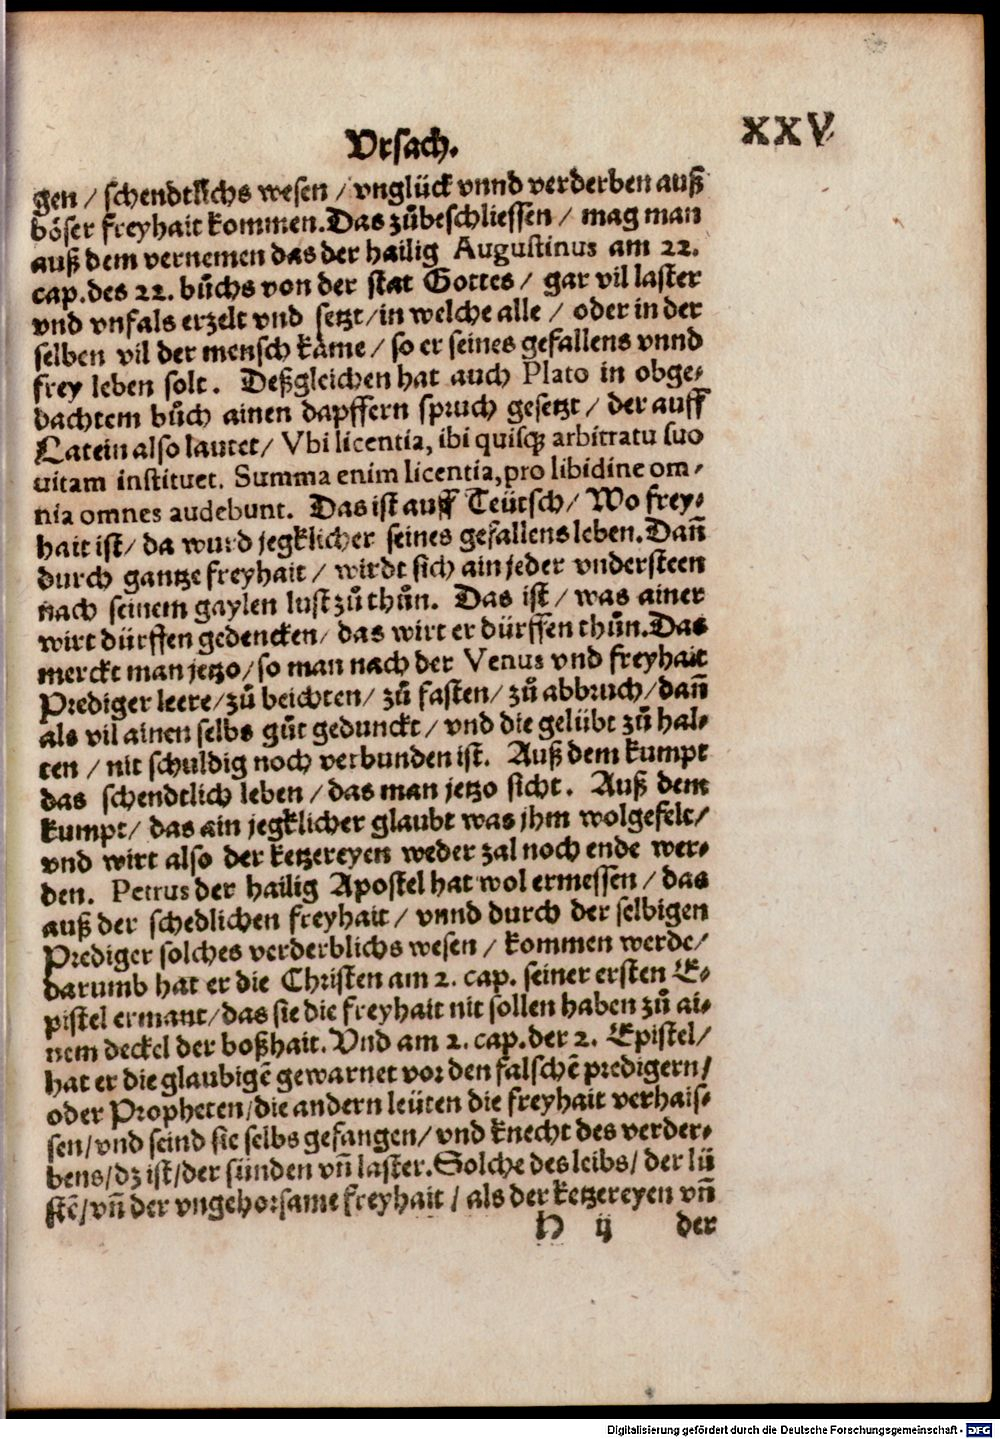 Vrsach.
XXV
gen / schendtlichs wesen / vnglück vnnd verderben auß
böser freyhait kommen. Das zůbeschliessen / mag man
auß dem vernemen das der hailig Augustinus am 22.
cap. des 22. bůchs von der stat Gottes / gar vil laster
vnd vnfals erzelt vnd setzt / in welche alle / oder in der
selben vil der mensch käme / so er seines gefallens vnnd
frey leben solt. Deßgleichen hat auch Plato in obge-
dachtem bůch ainen dapffern spruch gesetzt / der auff
Latein also lautet / Vbi licentia, ibi quisq; arbitratu suo
uitam instituet. Summa enim licentia, pro libidine om-
nia omnes audebunt. Das ist auff Teütsch / Wo frey-
hait ist / da wurd jegklicher seines gefallens leben. Dañ
durch gantze freyhait / wirdt sich ain jeder vndersteen
nach seinem gaylen lust zů thůn. Das ist / was ainer
wirt dürffen gedencken / das wirt er dürffen thůn. Das
merckt man jetzo / so man nach der Venus vnd freyhait
Prediger leere / zů beichten / zů fasten / zů abbruch / dañ
als vil ainen selbs gůt gedunckt / vnd die gelübt zů hal-
ten / nit schuldig noch verbunden ist. Auß dem kumpt
das schendtlich leben / das man jetzo sicht. Auß dem
kumpt / das ain jegklicher glaubt was jhm wolgefelt /
vnd wirt also der ketzereyen weder zal noch ende wer-
den. Petrus der hailig Apostel hat wol ermessen / das
auß der schedlichen freyhait / vnnd durch der selbigen
Prediger solches verderblichs wesen / kommen werde /
darumb hat er die Christen am 2. cap. seiner ersten E-
pistel ermant / das sie die freyhait nit sollen haben zů ai-
nem deckel der boßhait. Vnd am 2. cap. der 2. Epistel /
hat er die glaubigẽ gewarnet vor den falschẽ predigern /
oder Propheten / die andern leüten die freyhait verhais-
sen / vnd seind sie selbs gefangen / vnd knecht des verder-
bens / dz ist / der sünden vñ laster. Solche des leibs / der lü
stẽ / vñ der vngehorsame freyhait / als der ketzereyen vñ
H ij der
Digitalisierung gefördert durch die Deutsche Forschungsgemeinschaft - DFG